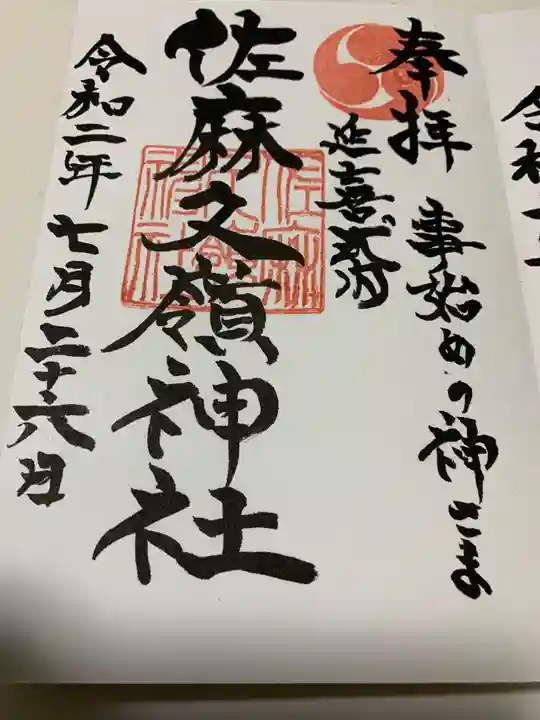 奉拝 事始めの神さま
延喜式内
佐麻久嶺神社
令和二年七月二十六日